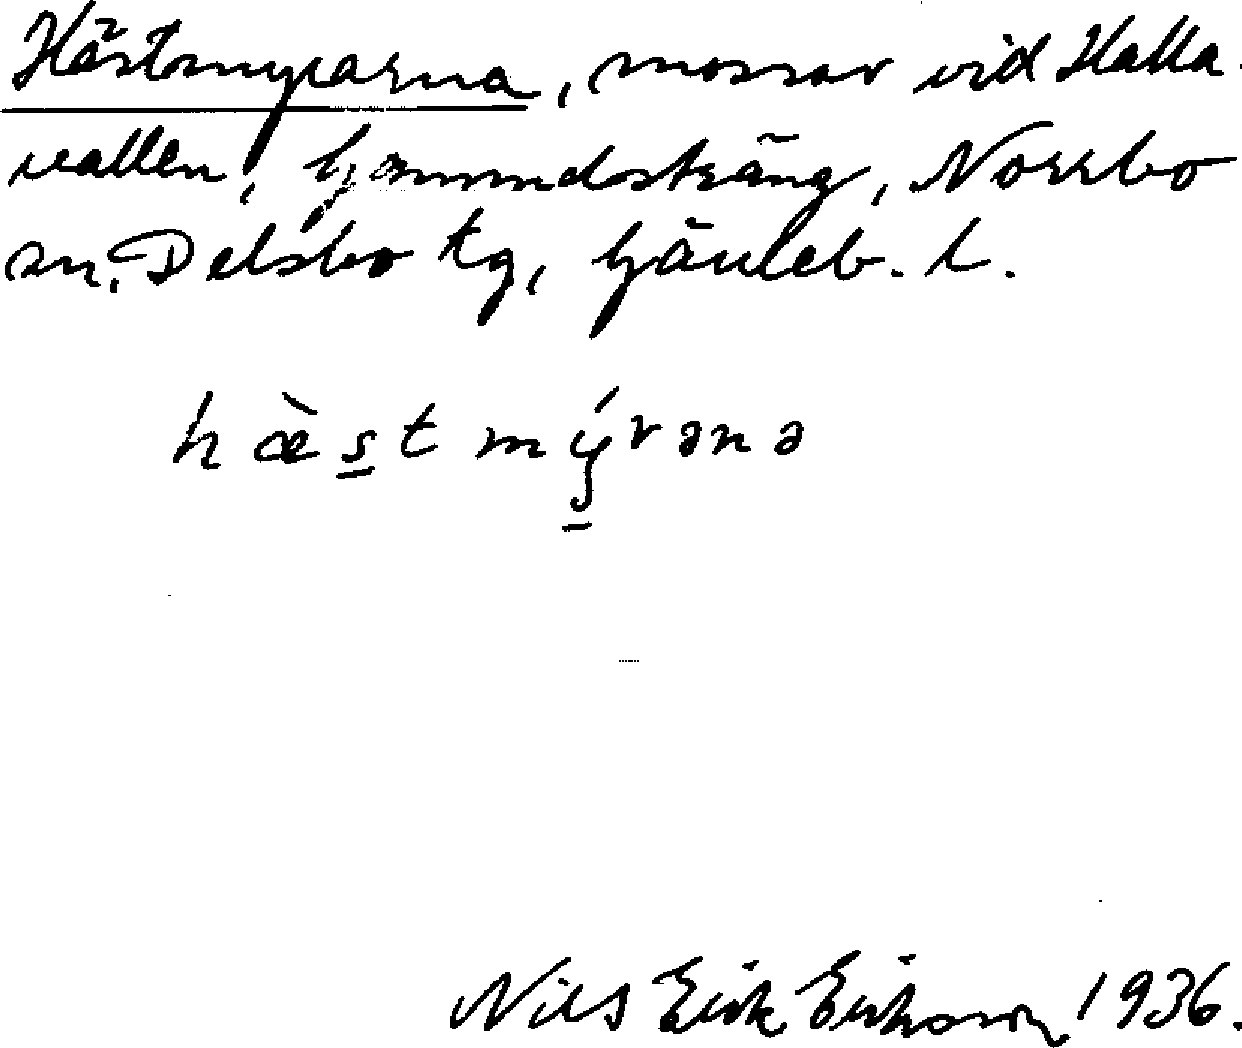 Hästmyrarna, mossar vid Halla-
vallen, Gammelsträng, Norrbo
sn. Delsbo tg, Gävleb. l.
hæ̀s̲tmý̲rənə
Nils Erik Eriksson 1936.